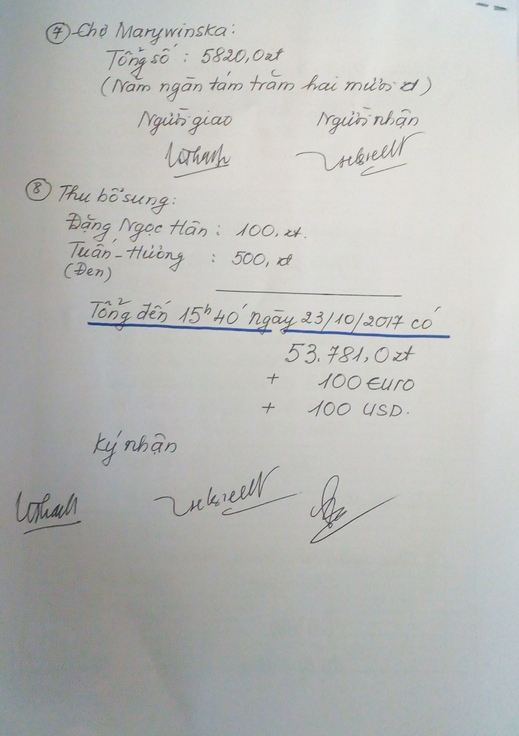 ⑦ Chợ Marywinska:
Tổng số : 5820,0zt
(Năm ngàn tám trăm hai mươi zt)
Người giao Người nhận
⑧ Thu bổ sung:
Đặng Ngọc Hân : 100, zt.
Tuấn - Hường : 500, zt
(Đen)
Tổng đến 15h40' ngày 23/10/2017 có
53.781,0 zt
+ 100 Euro
+ 100 USD.
Ký nhận